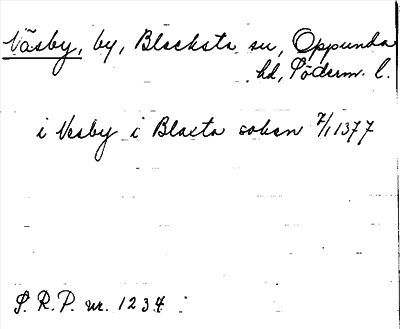 Väsby, by, Blacksta sn, Oppunda
hd, Söderm. l.
i Vesby i Blaxta sokn 7/1 1377
S. R. P. nr. 1234